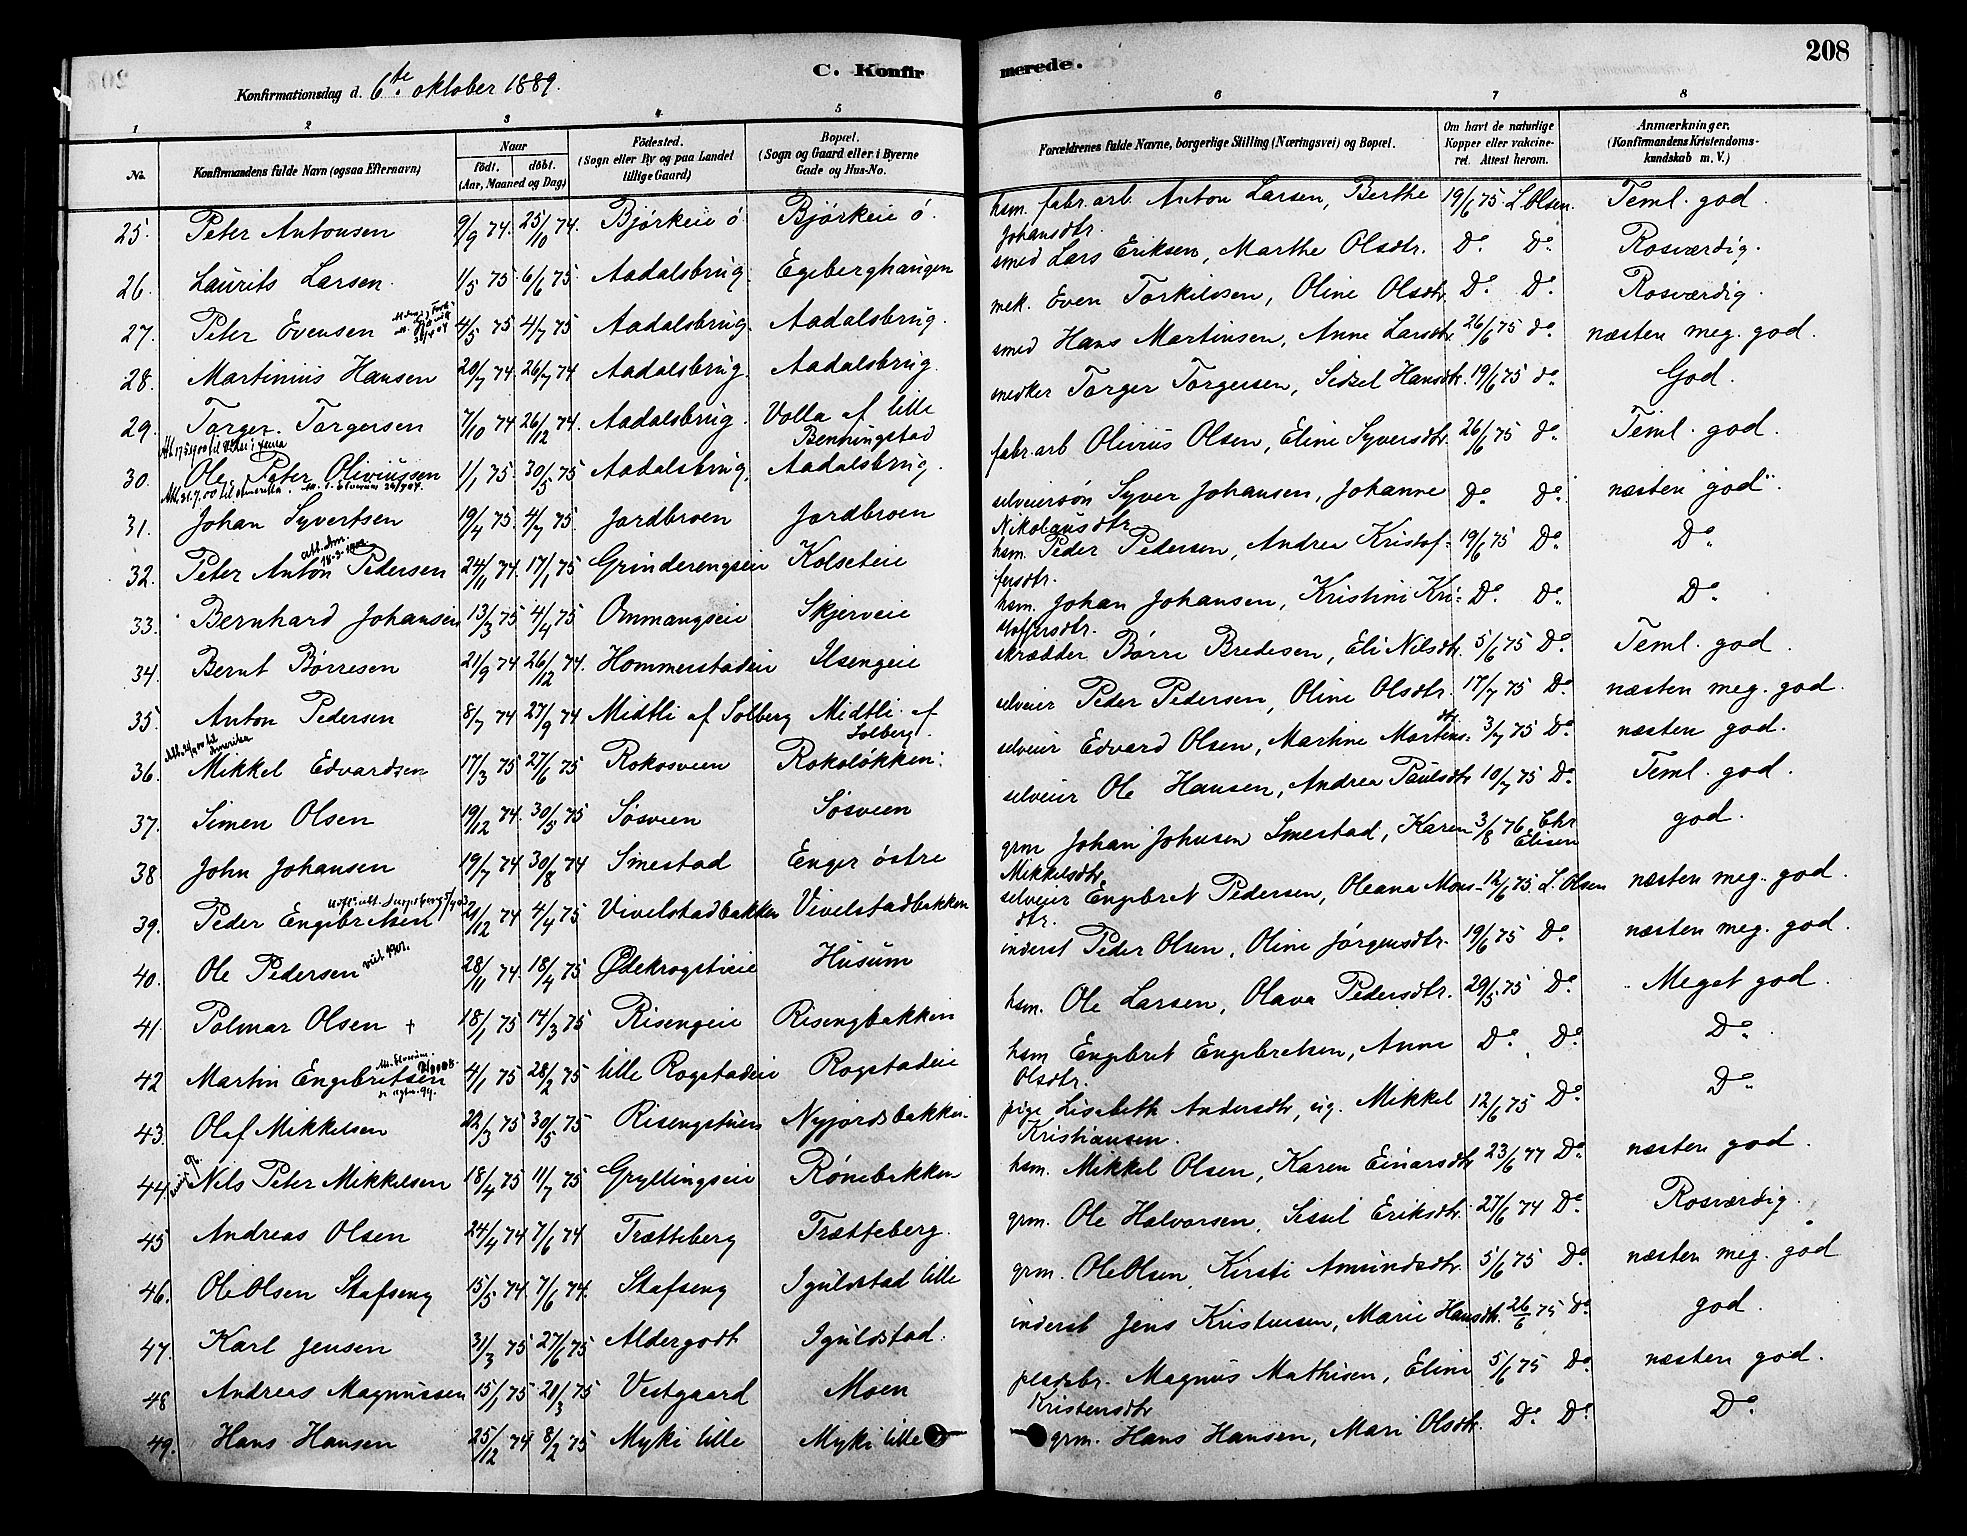 208
C. Konfirmerede.
Konfirmationsdag d. 6te oktober 1889.
1 2 3 4 5 6 7 8
No. Konfirmandens fulde Navn (ogsaa Efternavn) Naar født. døbt. (Aar, Maaned og Dag) Fødested. (Sogn eller By og paa Landet tillige Gaard) Bopæl. (Sogn og Gaard eller i Byerne Gade og Hus-No. Forældrenes fulde Navne, borgerlige Stilling (Næringsvei) og Bopæl. Om havt de naturlige Kopper eller vakcineret. Attest herom. Anmærkninger. (Konfirmandens Kristendomskundskab m. V.)
25. Peter Antonsen 9/9 74. 25/10 74. Bjørkeie ø Bjørkeie ø. hsm. fabr. arb. Anton Larsen, Berthe Johansdtr. 19/6 75. L. Olsen. Teml. god.
26. Laurits Larsen. 1/5 75 6/6 75. Aadalsbrug. Egeberghaugen smed Lars Eriksen, Marthe Olsdtr. Do. Do. Rosværdig.
27. Peter Evensen 4/5 75 4/7 75 Aadalsbrug. Aadalsbrug. mek. Even Torkildsen, Oline Olsdtr. Do. Do. Rosværdig.
28. Martinius Hansen 20/7 74. 26/7 74 Aadalsbrug. Aadalsbrug. smed Hans Martinsen, Anne Larsdtr. 26/6 75 do næsten meg. god.
29. Torger Torgersen 7/10 74 26/12 74. Aadalsbrug. Volla af lille Benningstad snedker Torger Torgersen, Sidsel Hansdtr. 19/6 75 do. God.
30. Ole Peter Oliviussen 1/1 75. 30/5 75 Aadalsbrug. Aadalsbrug. fabr. arb Olivius Olsen, Eline Syversdtr. 26/6 75 do. Teml. god.
31. Johan Syvertsen 19/4 75. 4/7 75. Jordbroen Jordbroen selveiersøn Syver Johansen, Johanne Nikolausdtr. Do. Do. næsten god.
32. Peter Anton Pedersen 24/11 74. 17/1 75 Grinderengseie Kolseteie hsm. Peder Pedersen, Andrea Kristoffersdtr. 19/6 75 Do. Do.
33. Bernhard Johansen 13/3 75 4/4 75 Ommangseie Skjerveie hsm. Johan Johansen, Kristine Kristoffersdtr. Do. Do. Do.
34. Bernt Børresen 21/9 74 26/12 74. Hommerstadeie Ilsengeie skrædder Børre Bredesen, Eli Nilsdtr. 5/6 75 Do. Teml. god.
35. Anton Pedersen 8/7 74 27/9 74 Midtli af Solberg Midtli af Solberg. selveier Peder Pedersen, Oline Olsdtr. 17/7 75 Do. næsten meg. god.
36. Mikkel Edvardsen 17/3 75 27/6 75 Rokosveen Rokoløkken. selveier Edvard Olsen, Martine Martinsdtr. 3/7 75 Do. næsten god.
37. Simen Olsen 19/12 74. 30/5 75 Søsveen Søsveen selveier Ole Hansen, Andrea Paulsdtr 10/7 75 Do. Teml. god.
38 John Johansen 19/7 74 30/8 74 Smestad Enger østre grm Johan Johnsen Smestad, Karen Mikkelsdtr. 3/8 76. Chr Elisen god.
39. Peder Engebretsen 21/12 74 4/4 75 Vivelstadbakken Vivelstadbakken selveier Engebret Pedersen, Oleana Monsdtr. 12/6 75. L. Olsen næsten meg. god.
40. Ole Pedersen 28/11 74. 18/4 75 Ødekrogstieie Husum inderst Peder Olsen, Oline Jørgensdtr. 19/6 75 Do. næsten meg. god.
41. Polmar Olsen + 18/1 75 14/3 75 Risengeie Risengbakken hsm. Ole Larsen, Olava Pedersdtr. 29/5 75 Do. Meget god.
42 Martin Engebretsen 4/1 75 28/2 75 lille Rogstadeie Rogstadeie hsm Engebret Engebretsen, Anne Olsdtr. Do. Do. Do.
43. Olaf Mikkelsen 22/3 75 30/5 75 Risengstuen Nyjordsbakken pige Lisabeth Andersdtr, ug. Mikkel Kristiansen. 12/6 75 Do. Do.
44. Nils Peter Mikkelsen 18/4 75 11/7 75 Gryllingseie Rønebakken hsm. Mikkel Olsen, Karen Einarsdtr 23/6 77 Do. næsten god.
45 Andreas Olsen 24/4 74 7/6 74 Trætteberg Trætteberg. grm. Ole Halvorsen, Sissel Eriksdtr. 27/6 74 Do. Rosværdig.
46. Ole Olsen Stafseng 15/5 74. 7/6 74. Stafseng Iguldstad lille grm. Ole Olsen, Kirsti Amundsdtr 5/6 75 Do. næsten meg. god
47. Karl Jensen 31/3 75 27/6 75 Aldergodt Iguldstad. inderst Jens Kristensen, Marie Hansdtr. 26/6 75 Do. god.
48 Andreas Magnussen 15/1 75 28/3 75 Vestgaard Moen pladsbr. Magnus Mathisen, Eline Kristensdtr 5/6 75 Do. næsten god.
49. Hans Hansen 25/12 74 8/2 75 Myki lille Myki lille grm. Hans Hansen, Mari Olsdtr. Do. Do. Do.